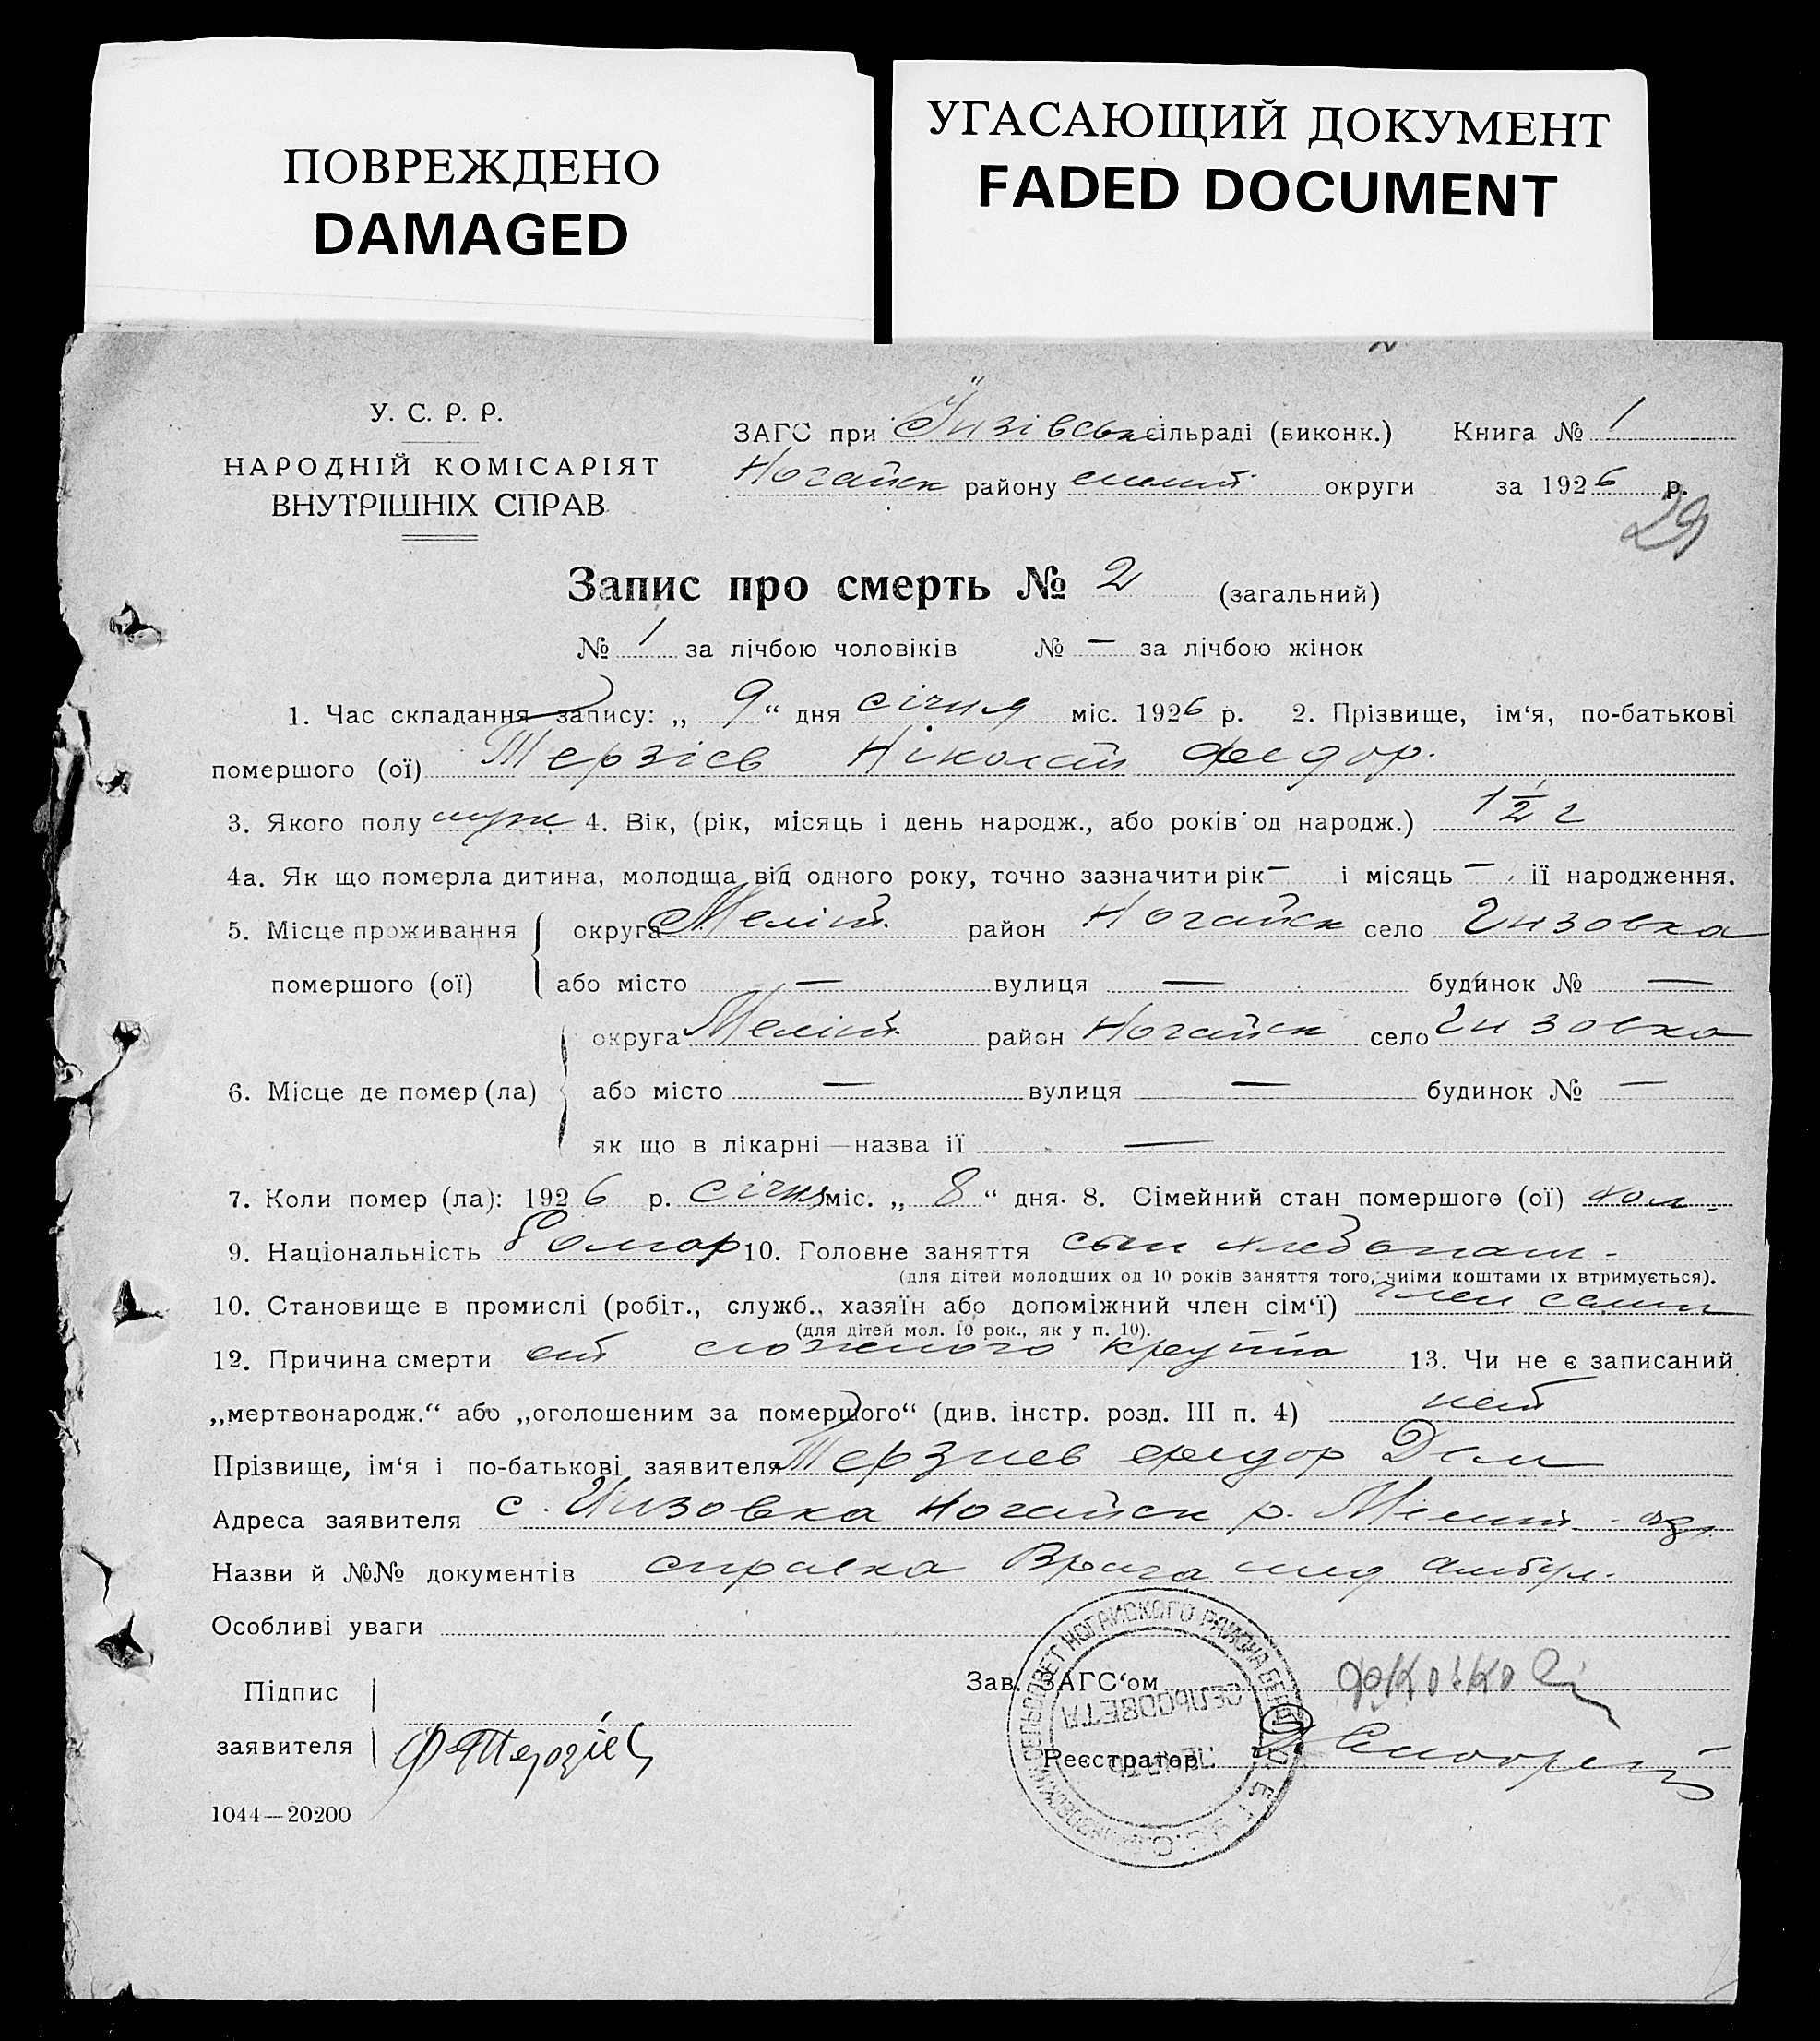 ПОВРЕЖДЕНО
DAMAGED
УГАСАЮЩИЙ ДОКУМЕНТ
FADED DOCUMENT
У. С. Р. Р.
НАРОДНІЙ КОМІСАРІЯТ
ВНУТРІШНІХ СПРАВ
ЗАГС при Інзівськ сільраді (виконк.) Книга № 1
Ногайск району мелит. округи за 1926 р.
29
Запис про смерть № 2 (загальний)
№ 1 за лічбою чоловіків № — за лічбою жінок
1. Час складання запису: „ 9 “ дня січня міс. 1926 р. 2. Прізвище, ім‘я, по-батькові
помершого (ої) Терзієв Ніколай Федор.
3. Якого полу муж 4. Вік, (рік, місяць і день народж., або років од народж.) 1 1/2 г
4а. Як що померла дитина, молодща від одного року, точно зазначити рік — і місяць — її народження.
5. Місце проживання округа Меліт. район Ногайск село Инзовка
помершого (ої) або місто — вулиця — будинок № —
округа Меліт. район Ногайск село Инзовка
6. Місце де помер (ла) або місто — вулиця — будинок № —
як що в лікарні — назва її —
7. Коли помер (ла): 1926 р. січня міс. „ 8 “ дня. 8. Сімейний стан помершого (ої) хол.
9. Національність болгар 10. Головне заняття сын хлебопаш.
(для дітей молодших од 10 років заняття того, чиїми коштами їх втримується).
10. Становище в промислі (робіт., служб., хазяїн або допоміжний член сім‘ї) член семи
(для дітей мол. 10 рок., як у п. 10).
12. Причина смерти от сложного крупа 13. Чи не є записаний
„мертвонародж.“ або „оголошеним за помершого“ (див. інстр. розд. III п. 4) нет
Прізвище, ім‘я і по-батькові заявителя Терзиев Федор Дем
Адреса заявителя с. Инзовка Ногайск р. Меліт. окр.
Назви й №№ документів справка Врача мед амбул.
Особливі уваги
Підпис
заявителя Ф Терзіев
Зав. ЗАГС‘ом
Реєстратор:
СЕЛЬСОВЕТ НОГАЙСКОГО РАЙОНА
СЕЛЬСОВЕТА
1044—20200